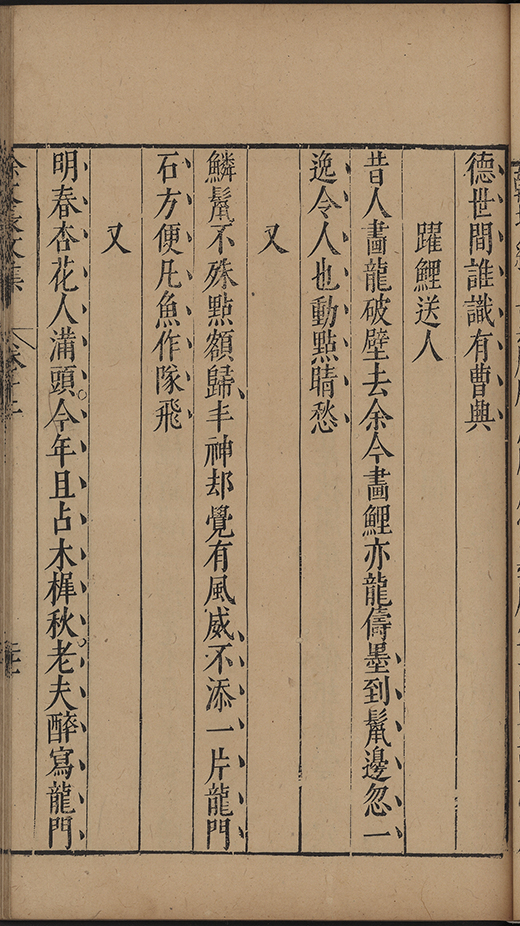 德世間誰識有曹興
躍鯉送人
昔人畵龍破壁去余今畵鯉亦龍儔墨到鬣邊忽一
逸令人也動點睛愁
又
鱗鬣不殊點額歸丰神却覺有風威不添一片龍門
石方便凡魚作隊飛
又
明春杏花人滿頭。今年且占木樨秋。老夫醉寫龍門